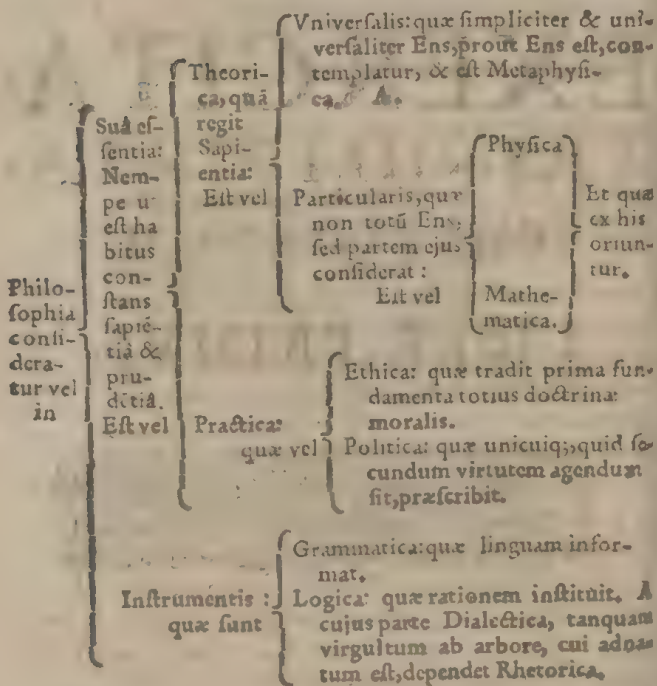 Philo-
sophia
consi-
dera-
tur vel
in
Suâ es-
sentia:
Nem-
pe u
est ha
bitus
con-
stans
sapiē-
tiâ &
pru-
dētiâ.
Est vel
Theori-
ca, quâ
regit
Sapi-
entia:
Est vel
Vniversalis: quæ simpliciter & uni-
versaliter Ens, prout Ens est, con-
templatur, & est Metaphysi-
ca.
Particularis, quæ
non totū Ens,
sed partem ejus
considerat:
Est vel
Physica
Mathe-
matica.
Et quæ
ex his
oriun-
tur.
Practica:
quæ vel
Ethica: quæ tradit prima fun-
damenta totius doctrinæ
moralis.
Politica: quæ unicuiq;, quid se
cundum virtutem agendum
sit, præscribit.
Instrumentis:
quæ sunt
Grammatica: quæ linguam infor-
mat.
Logica: quæ rationem instituit. A
cujus parte Dialectica, tanquam
virgultum ab arbore, cui adna-
tum est, dependet Rhetorica.